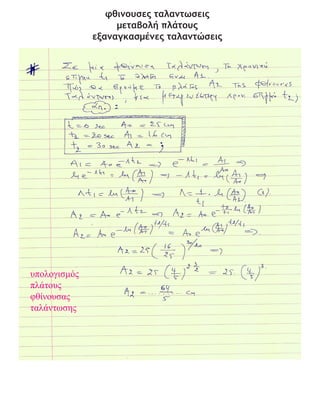 φθινουσες ταλαντωσεις
μεταβολή πλάτους
εξαναγκασμένες ταλαντώσεις
Σε μια φθίνουσα ταλάντωση, τη χρονική
στιγμή t₁ το πλάτος είναι A₁.
Πώς θα βρούμε το πλάτος A₂ της φθίνουσας
ταλάντωσης, για μεταγενέστερη χρον. στιγμή t₂;
t=0 sec A₀ = 25 cm
t₂ = 20 sec A₁ = 16 cm
t₂ = 30 sec A₂ = ;
A₁ = A₀ e^-Λt₁ => e^-Λt₁ = A₁/A₀ =>
ln e^-Λt₁ = ln(A₁/A₀) => -Λt₁ = ln(A₁/A₀) =>
Λt₁ = ln(A₀/A₁) => Λ = 1/t₁ ln(A₀/A₁)
A₂ = A₀ e^-Λt₂ => A₂ = A₀ e^-t₂/t₁ ln(A₀/A₁)
A₂ = A₀ e^-ln(A₀/A₁)^t₂/t₁ = A₀ e^ln(A₁/A₀)^t₂/t₁ =>
A₂ = 25 (16/25)^30/20 =>
A₂ = 25 (4/5)^2·3/2 = 25 (4/5)³
A₂ = ... 64/5 ... cm
υπολογισμός
πλάτους
φθίνουσας
ταλάντωσης